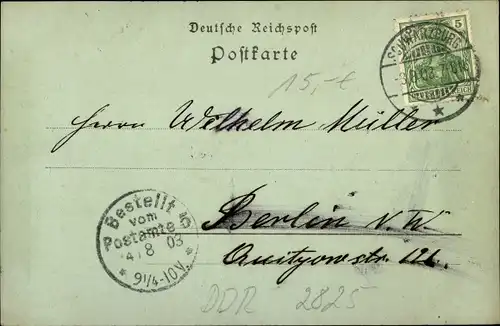 Deutsche Reichspost
Postkarte
5
SCHWARZBURG
15,-€
Herrn Wilhelm Müller
Berlin N.W.
Quitzowstr.
Bestellt
vom
Postamte
4 8 03
* 9 1/4-10 V. *
DDR 2825